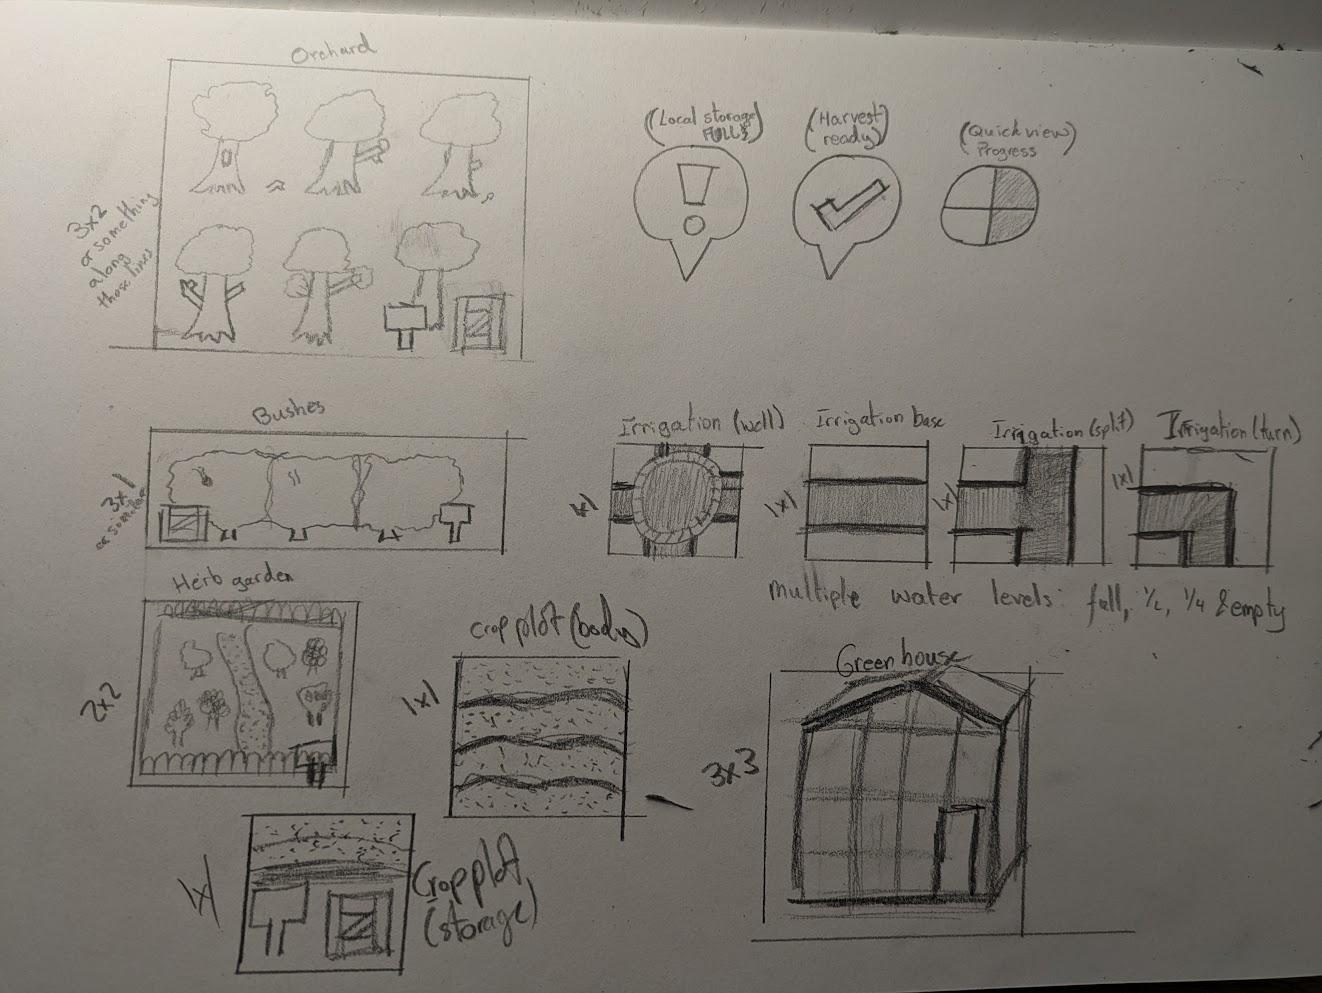 Orchard
3x2
or something
along
those lines
(Local storage
FULL)
(Harvest
ready)
(Quick view)
Progress
Bushes
3x1
or
Irrigation (well)
1x1
Irrigation base
1x1
Irrigation (split)
1x1
Irrigation (turn)
1x1
multiple water levels: full, 1/2, 1/4 & empty
Herb garden
2x2
crop plot (body)
1x1
Green house
3x3
1x1
Crop plot
(storage)